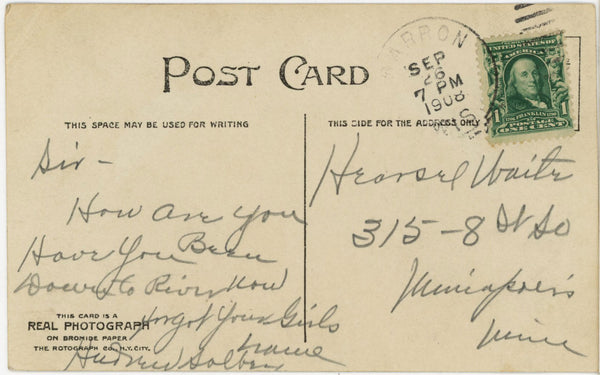 POST CARD
BARRON
SEP
26
7 PM
1908
WIS.
UNITED STATES OF
AMERICA
1 1
POSTAGE
ONE CENT
THIS SPACE MAY BE USED FOR WRITING
THIS SIDE FOR THE ADDRESS ONLY
Sir -
How Are You
Have You Been
Down to River Now
Forgot Your Girls
name
Andrew
Waite
315-8 St So
Minneapolis
Minn
THIS CARD IS A
REAL PHOTOGRAPH
ON BROMIDE PAPER
THE ROTOGRAPH CO., N.Y. CITY.